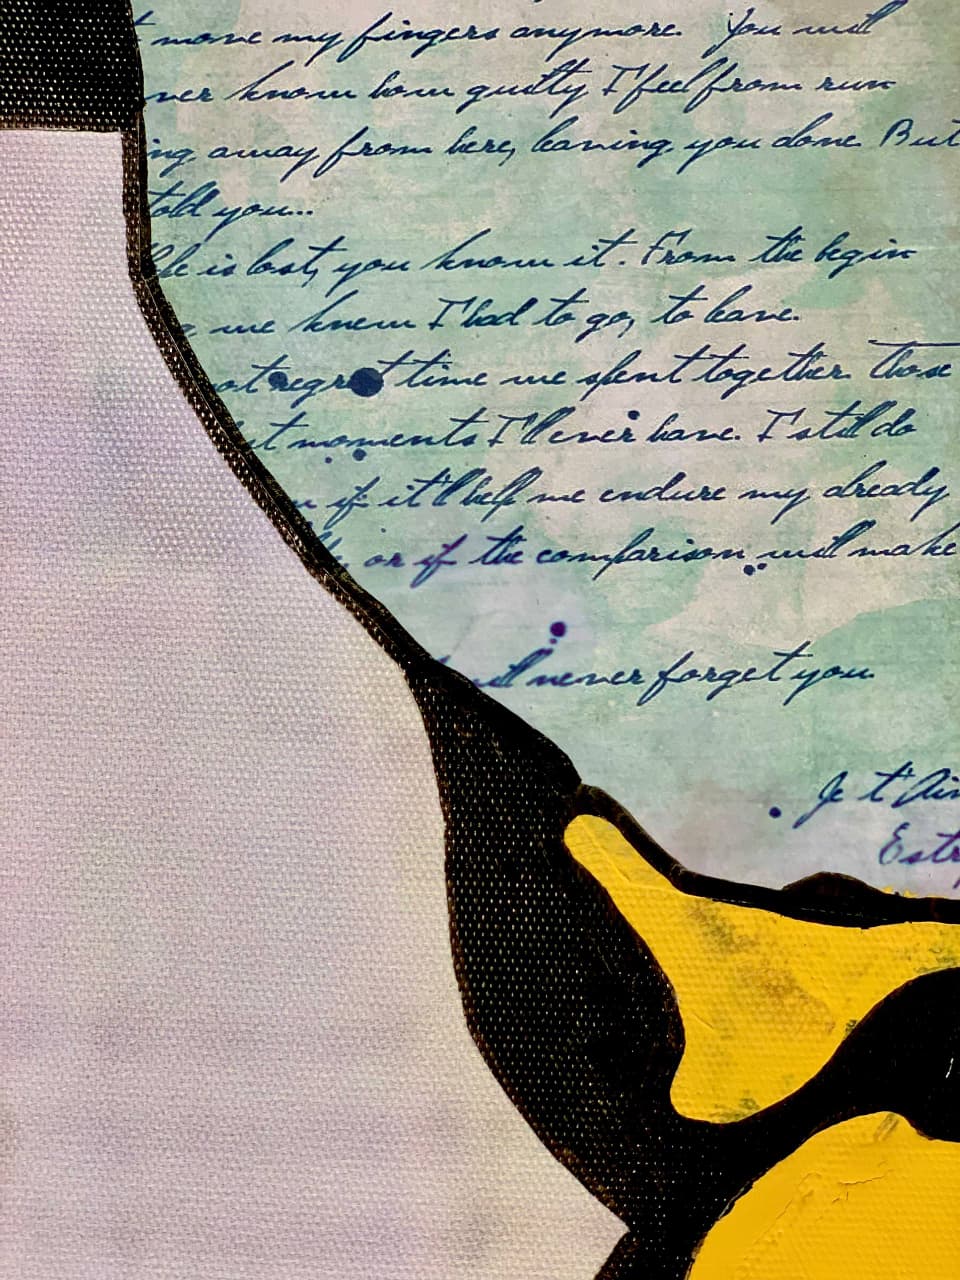 t move my fingers anymore. You will
ver know how guilty I feel from run
ing away from here, leaving you alone. But
told you...
life is lost, you know it. From the begin
g we knew I had to go, to leave.
not regret time we spent together. Those
st moments I'll ever have. I still do
w if it'll help me endure my already
or if the comparison will make
will never forget you.
Je t'Aim
Estr